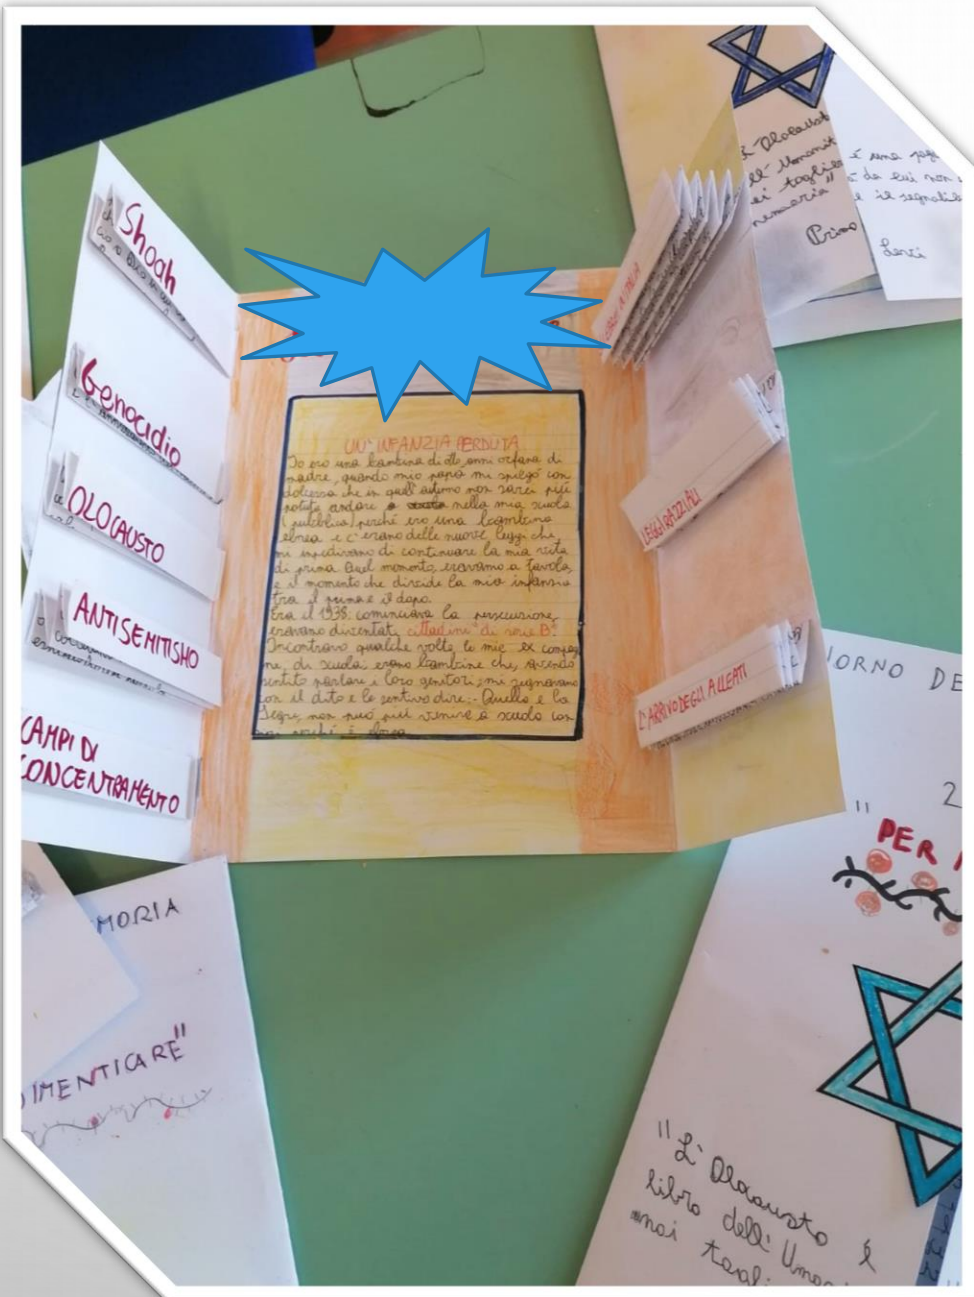 Shoah
Genocidio
OLOCAUSTO
ANTISEMITISMO
CAMPI DI
CONCENTRAMENTO
UN' INFANZIA PERDUTA
Io ero una bambina di otto anni orfana di
madre, quando mio papà mi spiegò con
dolcezza che in quell'autunno non sarei più
potuta andare a scuola nella mia scuola
(pubblica) perché ero una bambina
ebrea e c'erano delle nuove leggi che
mi impedivano di continuare la mia vita
di prima. Quel momento, eravamo a tavola,
è il momento che divide la mia infanzia
tra il prima e il dopo.
Era il 1938. cominciava la persecuzione,
eravamo diventati cittadini "di serie B".
Incontravo qualche volta, le mie ex compag
ne, di scuola, erano bambine che, avendo
sentito parlare i loro genitori, mi segnavano
con il dito e le sentivo dire:- Quella è la
Segre, non può più venire a scuola con
noi perché è ebrea
LEGGI RAZZIALI
L'ARRIVO DEGLI ALLEATI
L'Olocausto
dell'Umanit
mei toglie
memoria"
Primo
è una pag
da cui non
e il segnalib
Levi
MORIA
DIMENTICARE"
IORNO DE
2
" PER
"L'Olocausto è
libro dell'Uma
mai togl